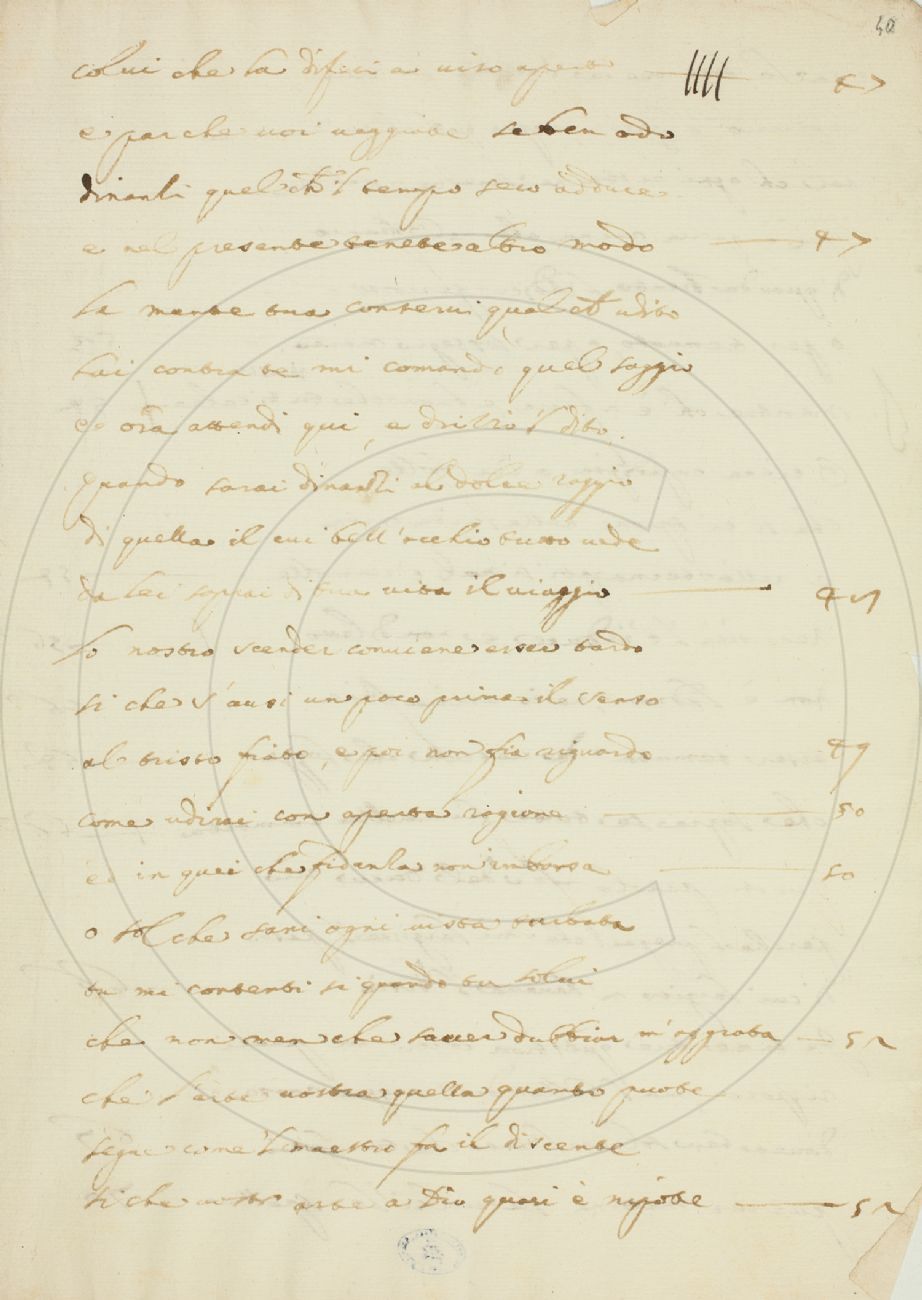 40
colui che la difesi a viso aperto 47
e par che voi veggiate se ben odo
dinanti quel ch'l tempo seco adduce
e nel presente tenete altro modo 47
la mente tua conservi quel ch' udito
hai contra te mi comandò quel saggio
ed ora attendi qui, e drizzò 'l dito.
quando sarai dinanzi al dolce raggio
di quella il cui bell'occhio tutto vede
da lei saprai di tua vita il viaggio
lo nostro scender conviene esser tardo
si che s'ausi un poco prima il senso
al tristo fiato, e poi non fia riguardo 49
come udirai con aperta ragione 50
ed in quei che fidanza non imborsa 50
o sol che sani ogni vista turbata
tu mi contenti si quando tu solvi
che non men che saver dubbiar m'aggrata 52
che l'arte vostra quella quanto puote
segue come 'l maestro fa il discente
si che vostr' arte a Dio quasi è nipote 52